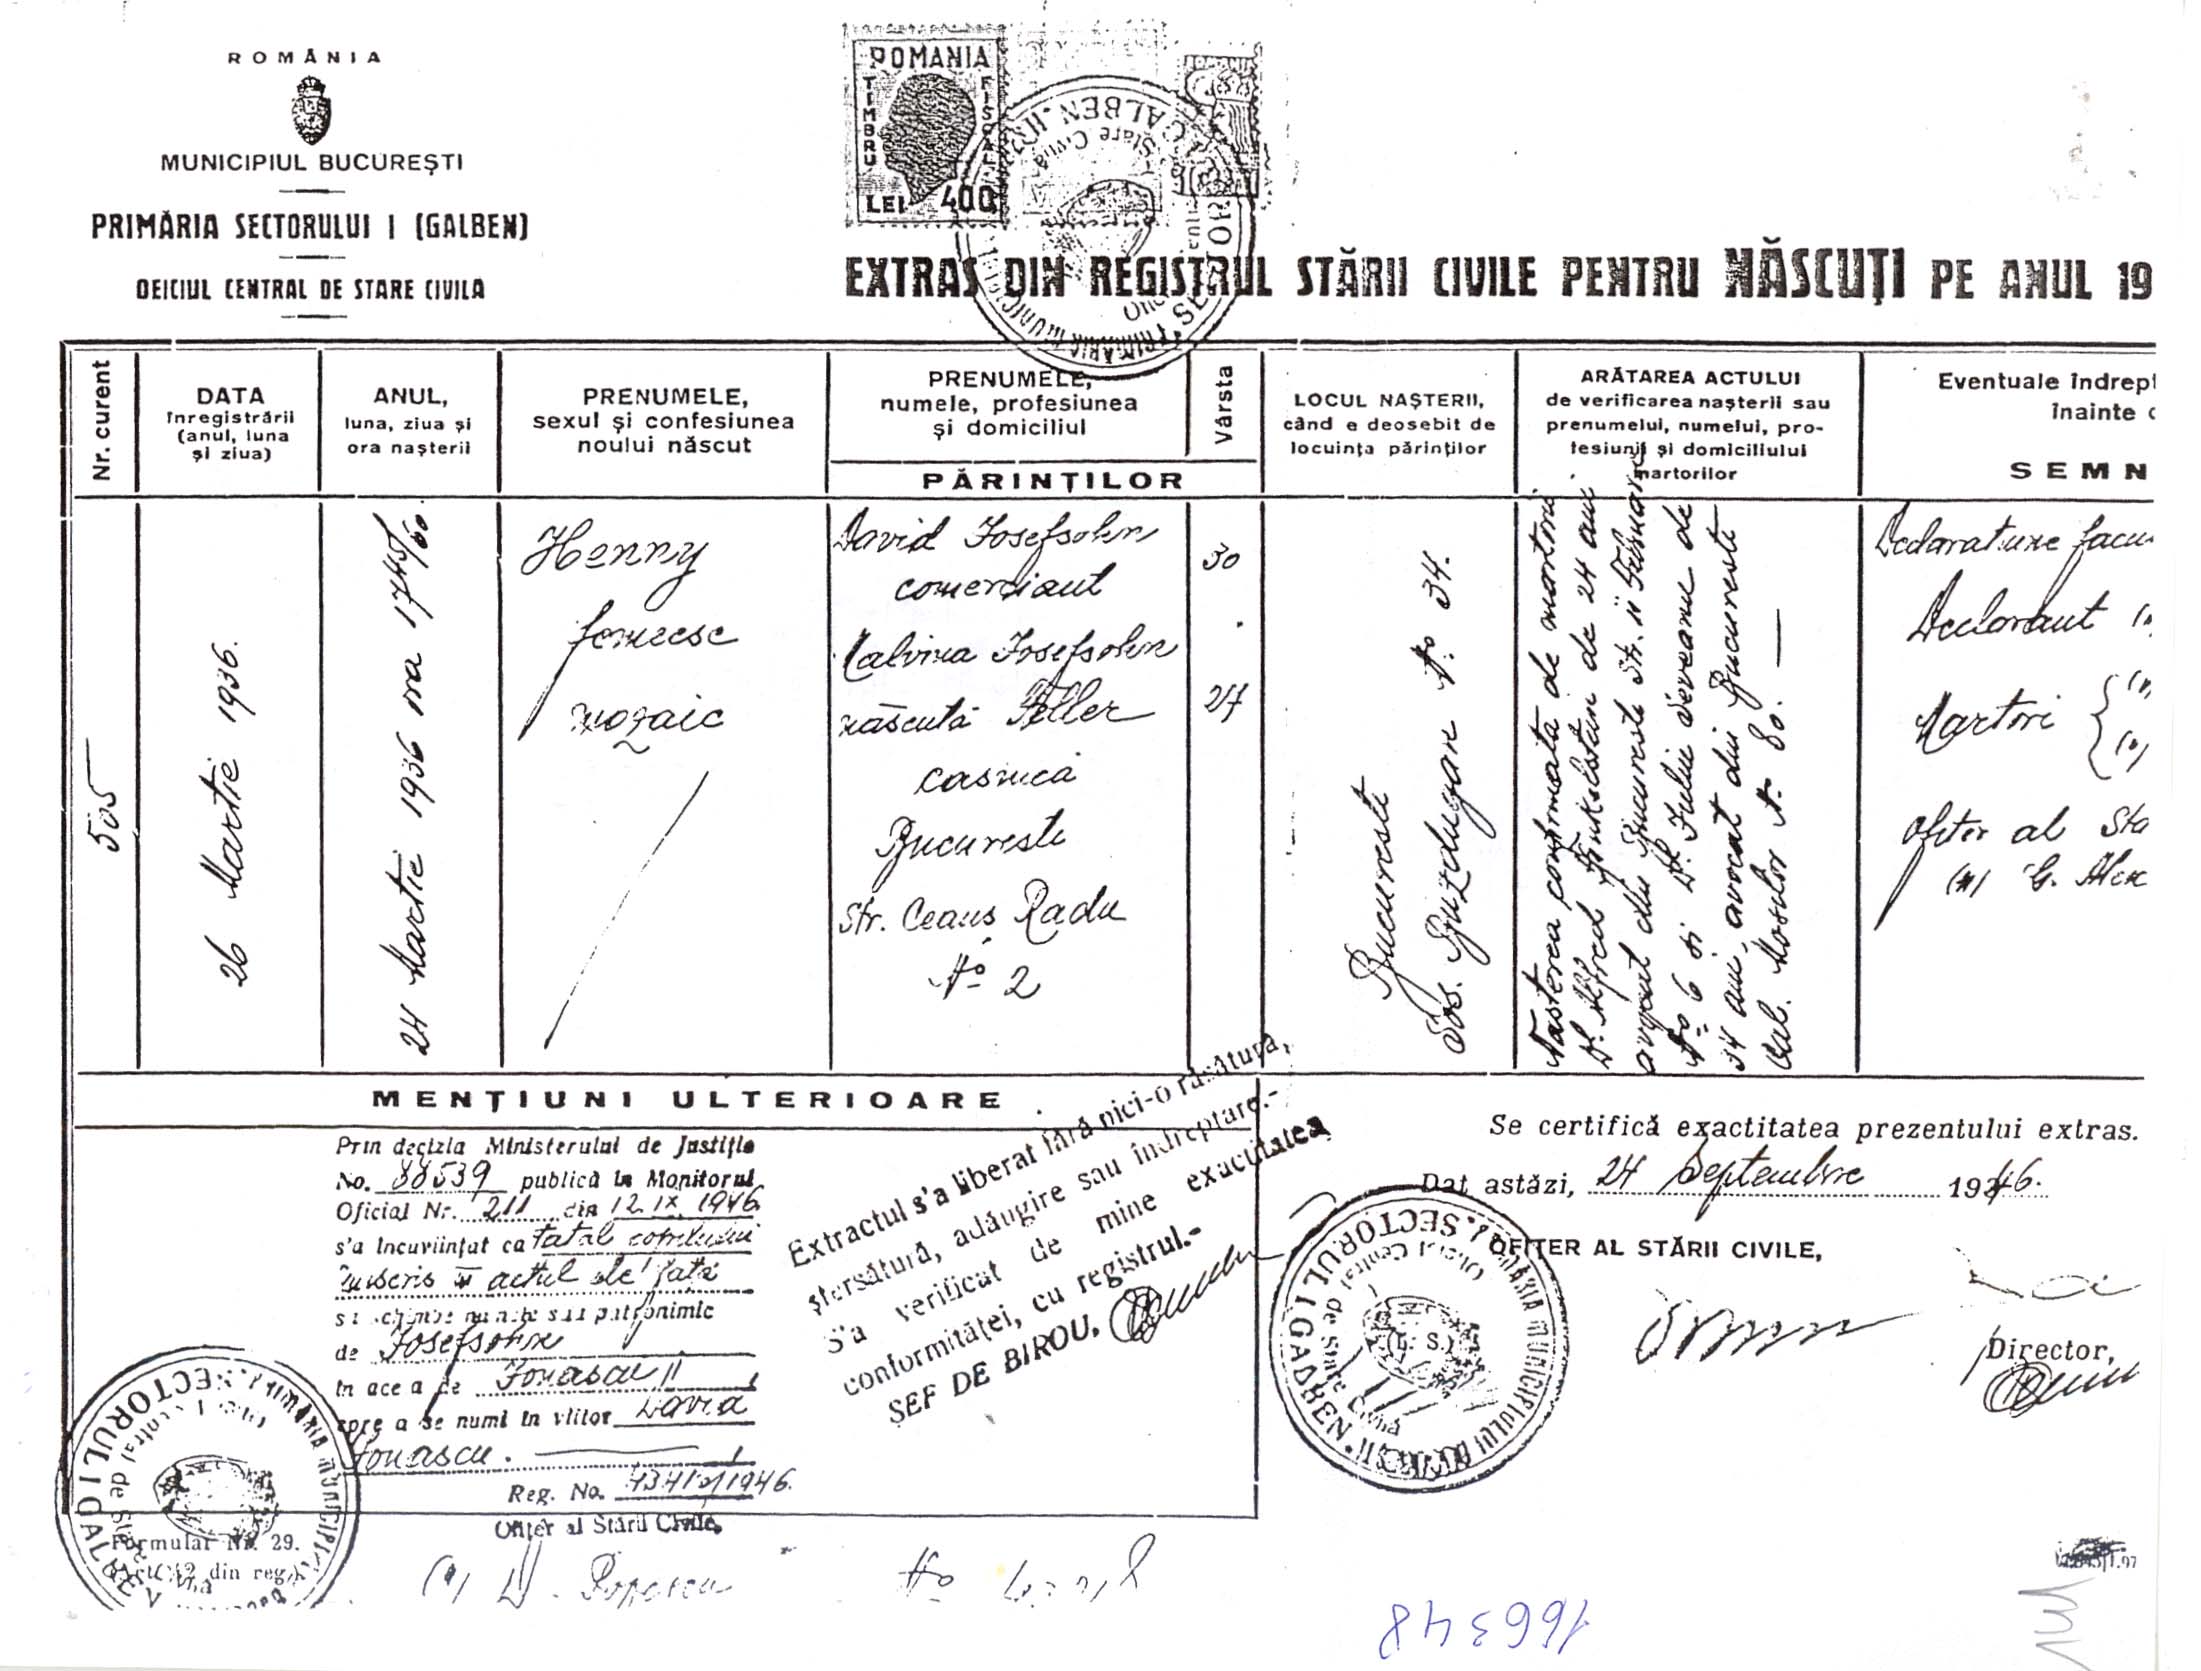 ROMÂNIA
MUNICIPIUL BUCUREŞTI
PRIMĂRIA SECTORULUI I (GALBEN)
OEICIUL CENTRAL DE STARE CIVILA
ROMANIA
TIMBRU FISCAL
LEI 400
EXTRAS DIN REGISTRUL STĂRII CIVILE PENTRU NĂSCUŢI PE ANUL 19
Nr. curent
DATA
înregistrării
(anul, luna
şi ziua)
ANUL,
luna, ziua şi
ora naşterii
PRENUMELE,
sexul şi confesiunea
noului născut
PRENUMELE,
numele, profesiunea
şi domiciliul
Vârsta
PĂRINŢILOR
LOCUL NAŞTERII,
când e deosebit de
locuinţa părinţilor
ARĂTAREA ACTULUI
de verificarea naşterii sau
prenumelui, numelui, pro-
fesiunii şi domiciliului
martorilor
Eventuale îndrept
înainte
SEMN
505
26 Martie 1936.
24 Martie 1936 ora 17 45/60
Henny
femeesc
mozaic
David Josefsohn
comerciant
Malvina Josefsohn
născută Feller
casnică
Bucuresti
Str. Ceaus Radu
No 2
30
27
Bucuresti
Sos. Buzdugan No 34.
Nasterea confirmată de martorii
D. Alfred Finkelstein de 24 ani
avocat din Bucuresti Str. 11 Februarie
No 6 si D. Iuliu Severeanu de
34 ani, avocat din Bucuresti
Cal. Mosilor No 80.
Declaratiune facu
Declarant
Martori
ofiter al Sta
(n) G. Alex
MENŢIUNI ULTERIOARE
Prin decizia Ministerului de Justiţie
No. 88539 publică în Monitorul
Oficial Nr. 211 din 12.IX.1946
s'a încuviinţat ca tatal copilului
înscris în actul de fată
să-şi schimbe numele său patronimic
de Josefsohn
în acela de Jonascu
spre a se numi în viitor David
Jonascu.
Reg. No. /1946.
Ofiţer al Stării Civile,
D. Popescu
Extractul s'a liberat fără nici-o răsătură,
ştersătură, adăugire sau îndreptare.-
S'a verificat de mine exactitatea
conformităţei, cu registrul.-
ŞEF DE BIROU,
Se certifică exactitatea prezentului extras.
Dat astăzi, 24 Septembrie 1946.
OFIŢER AL STĂRII CIVILE,
(L. S.)
Director,
PRIMĂRIA MUNICIPIULUI BUCUREŞTI. SECTORUL I GALBEN
Oficiul Central de Stare Civilă
Formular Nr. 29.
(Art. 42 din reg.)
166348